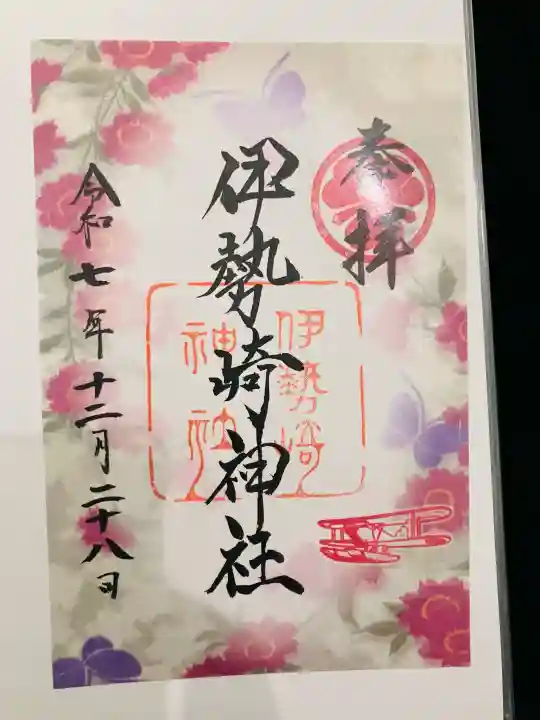 奉拝
伊勢崎神社
伊勢崎
神社
令和七年十二月二十八日